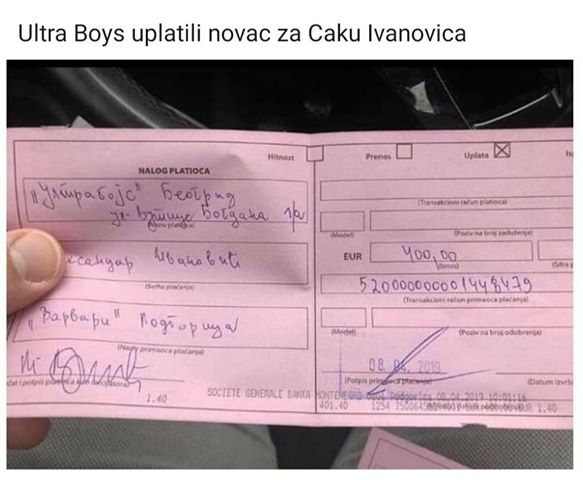 Ultra Boys uplatili novac za Caku Ivanovica
Hitnost
Prenos
Uplata
NALOG PLATIOCA
"Ултрабојс" Београд
(Transakcioni račun platioca)
(Model)
(Poziv na broj zaduženja)
EUR
400,00
(Iznos)
Ивановић
520000000001448479
(Svrha plaćanja)
(Transakcioni račun primaoca plaćanja)
"Варвари" Подгорица
(Model)
(Poziv na broj odobrenja)
(Naziv primaoca plaćanja)
08. 04. 2019
(Potpis primaoca plaćanja)
(Datum izvrš
1.40
SOCIETE GENERALE BANKA MONTENEGRO
08.04.2019 10:01:16
401.40
1254
1.40